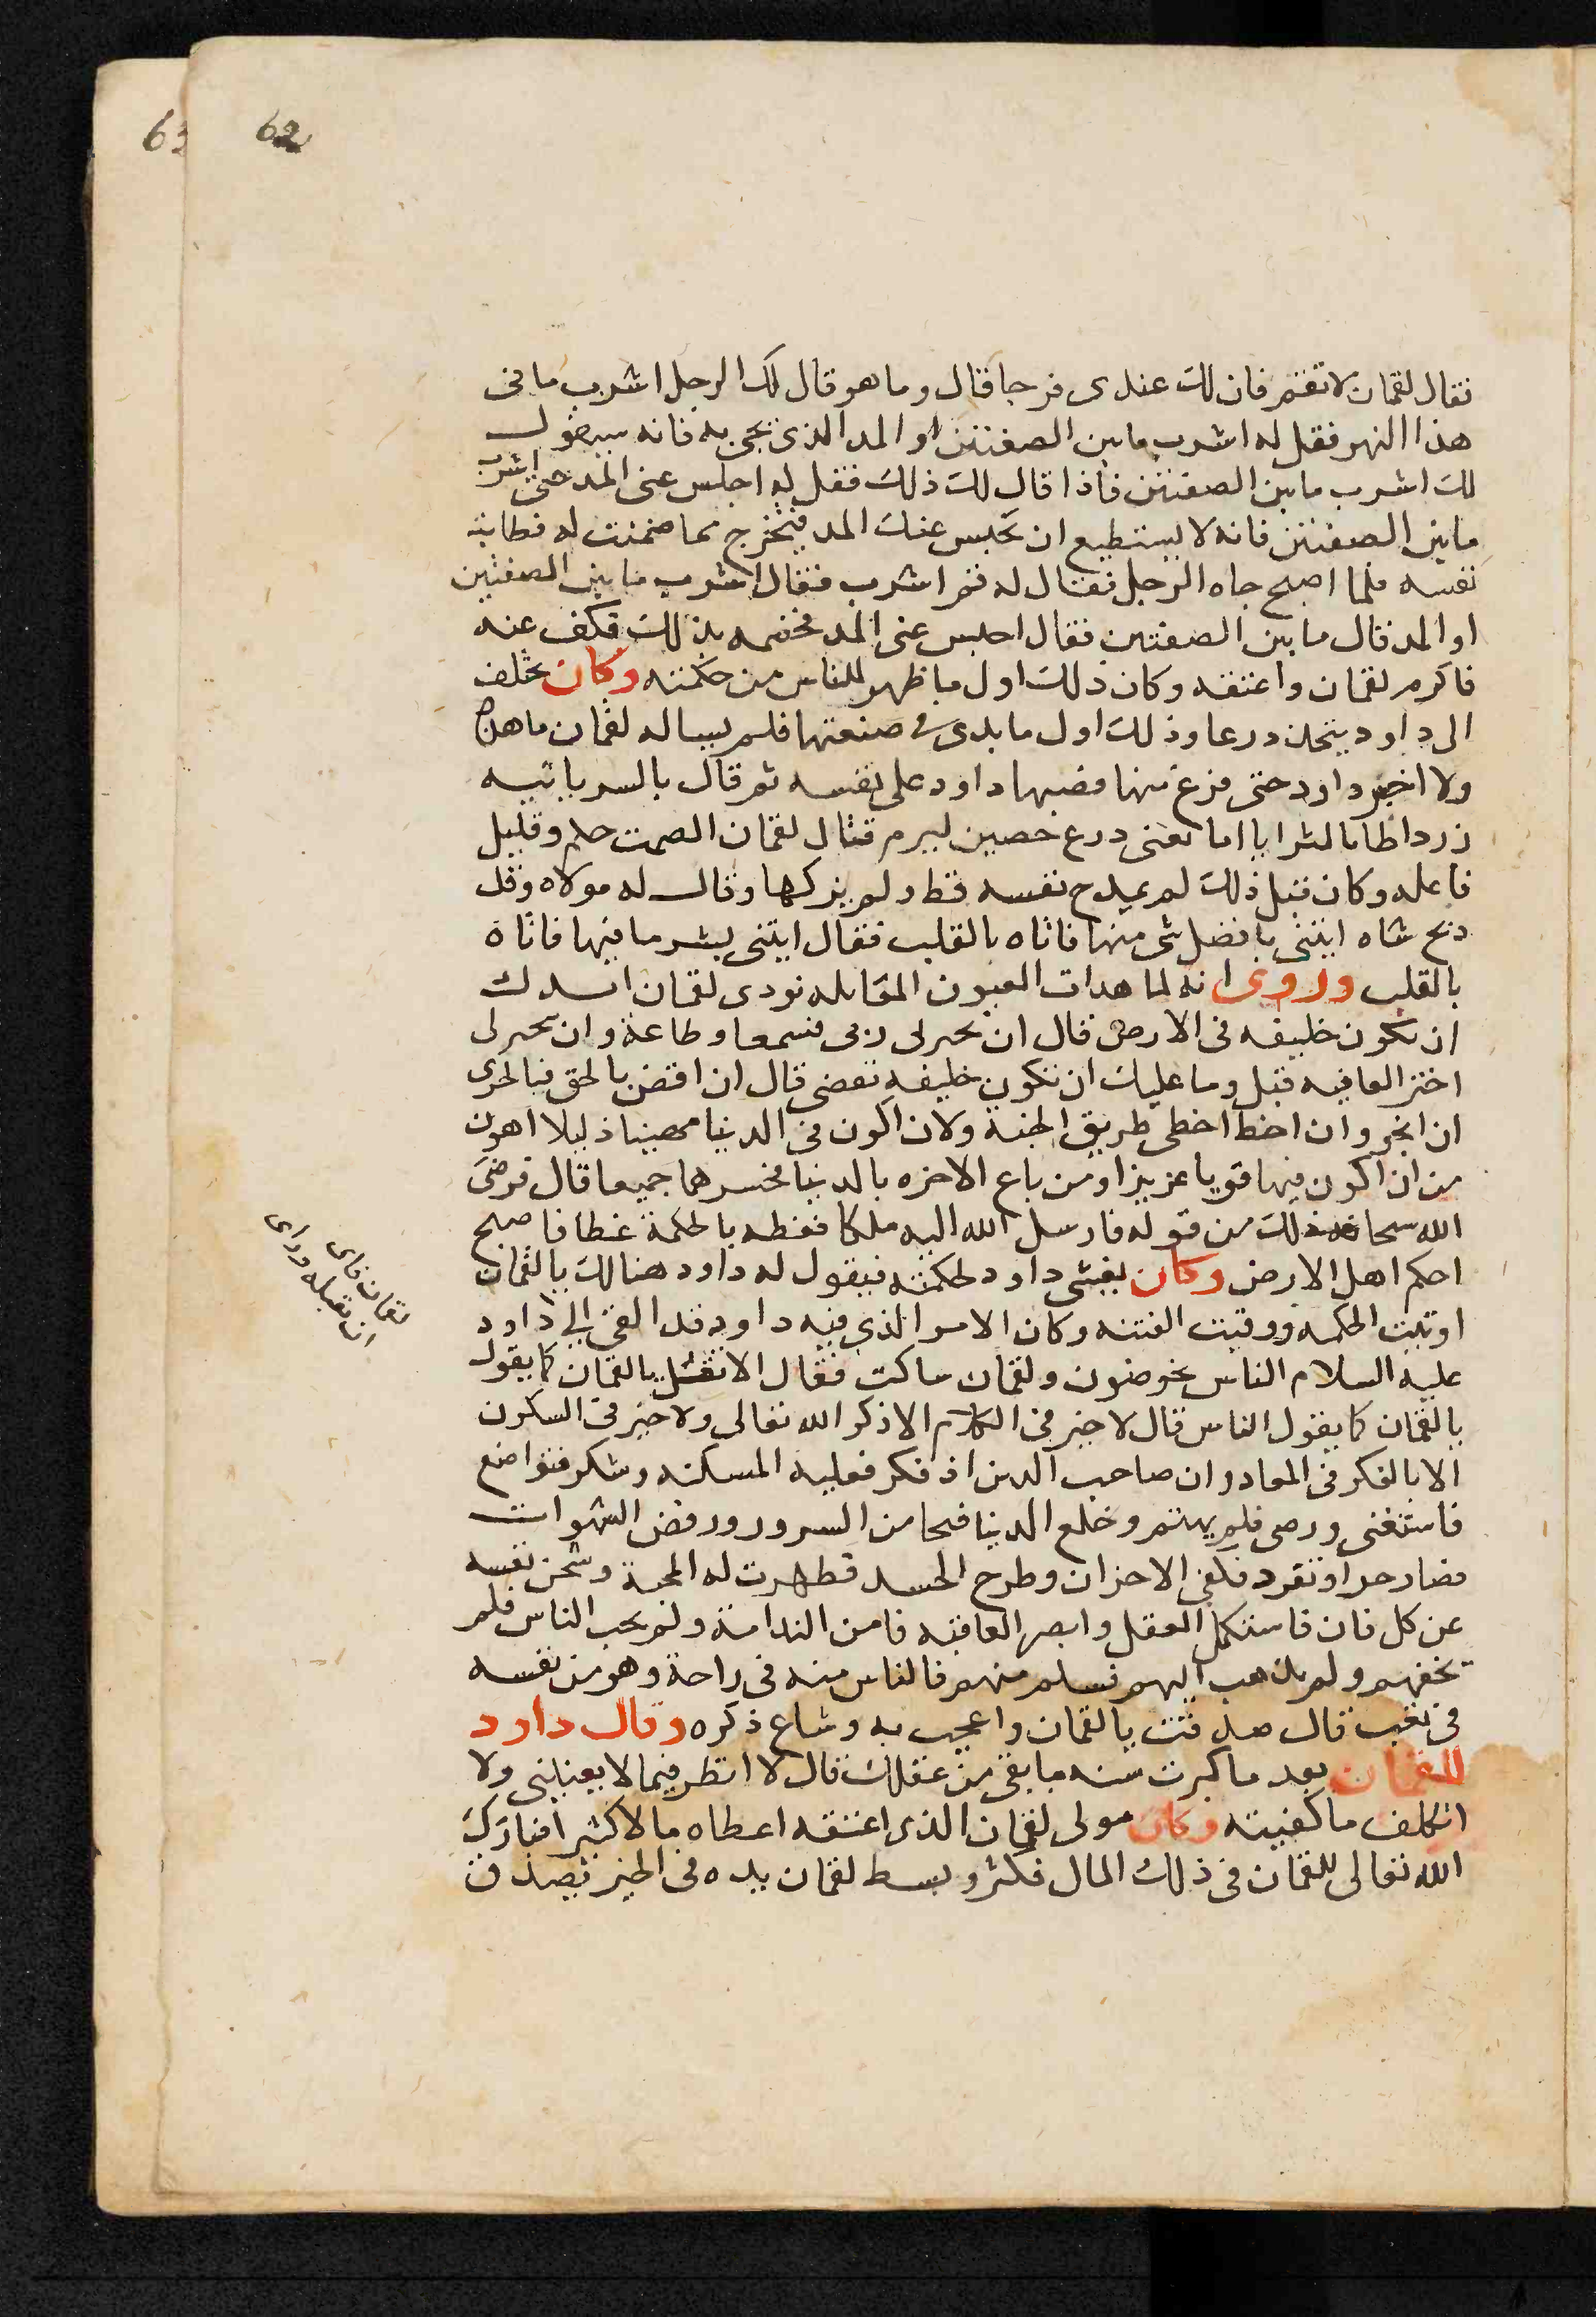 62
63
فقال لقمان لا تغتم فان لك عندى فرجا قال وما هو قال لك الرجل اشرب ما فى
هذا النهر فقل له اشرب ما بين الصفتين او المد الذى يجى به فانه سيقول
لك اشرب ما بين الصفتين فاذا قال لك ذلك فقل له احبس عنى المد حتى اشرب
ما بين الصفتين فانه لا يستطيع ان يحبس عنك المد فتخرج مما ضمنت له فطابت
نفسه فلما اصبح جاه الرجل فقال له قم اشرب فقال اشرب ما بين الصفتين
او المد قال ما بين الصفتين فقال احبس عنى المد فخصمه بذلك فكف عنه
فاكرم لقمان واعتقه وكان ذلك اول ما ظهر للناس من حكمته وكان يختلف
الى داود يتخذ درعا وذلك اول ما بدى فى صنعتها فلم يساله لقمان ما هذا
ولا اخبره داود حتى فرغ منها فصبها داود على نفسه ثم قال بالسريانيه
زرد اطابا لثرايا اما تعنى درع حصين ليرم فقال لقمان الصمت حلم وقليل
فاعله وكان قبل ذلك لم يمدح نفسه قط ولم يزكها وقال له مولاه وقد
ذبح شاه ايتنى بافضل شى منها فاتاه بالقلب فقال ايتنى بشر ما فيها فاتاه
بالقلب وروى انه لما هدات العيون المقابله نودى لقمان ايسرك
ان تكون خليفه فى الارض قال ان يجبرنى ربى فسمعا وطاعة وان يخيرنى
اختر العافيه قيل وما عليك ان تكون خليفه تقضى قال ان اقض بالحق فبالحرى
ان انجو وان اخط اخطى طريق الجنة ولان اكون فى الدنيا مهينا ذليلا اهون
من ان اكون فيها قويا عزيزا ومن باع الاخره بالدنيا خسرهما جميعا قال فرضى
الله سبحانه ذلك من قوله فارسل الله اليه ملكا فغطه بالحكمة غطا فاصبح
احكم اهل الارض وكان يغشى داود لحكمته فيقول له داود هنالك يالقمان
اوتيت الحكمه ووقيت الفتنه وكان الامر الذى فيه داود قد القى الى داود
عليه السلام الناس يخوضون ولقمان ساكت فقال الا تقل يالقمان كما يقول
يالقمان كما يقول الناس قال لا خير فى الكلام الا ذكر الله تعالى ولا خير فى السكون
الا بالفكر فى المعاد وان صاحب الدين اذ فكر فعليه المسكنه وشكر فتواضع
فاستغنى ورضى فلم يهتم وخلع الدنيا فنجا من السرور ورفض الشهوات
فصار حرا وتفرد فكفى الاحزان وطرح الحسد فظهرت له المحبة وشحن نفسه
عن كل فان فاستكمل العقل وابصر العاقبه فامن الندامة ولم يحب الناس فلم
يخفهم ولم يذهب اليهم فسلم منهم فالناس منه فى راحة وهو من نفسه
فى تعب قال صدقت يالقمان واعجب به وشاع ذكره وقال داود
للقمان بعد ما كبرت سنه ما بقى من عقلك قال لا انظر فيما لا يعنينى ولا
اتكلف ما كفيته وكان مولى لقمان الذى اعتقه اعطاه مالا كثيرا فبارك
الله تعالى للقمان فى ذلك المال فكثر وبسط لقمان يده فى الخير تصدق
لقمان فاى
ان يقبله وراى